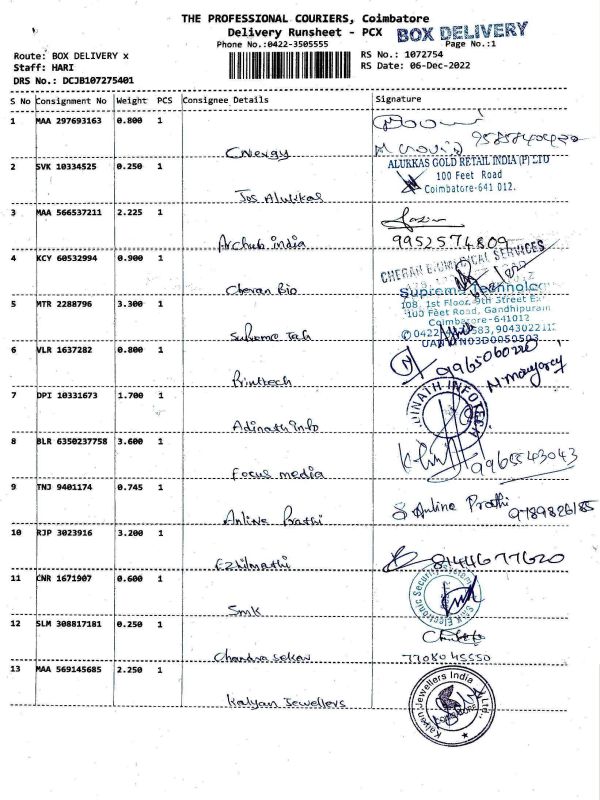 THE PROFESSIONAL COURIERS, Coimbatore
Delivery Runsheet - PCX
BOX DELIVERY
Phone No.:0422-3505555
Page No.:1
Route: BOX DELIVERY x
RS No.: 1072754
Staff: HARI
RS Date: 06-Dec-2022
DRS No.: DCJB107275401
S No Consignment No Weight PCS Consignee Details Signature
1 MAA 297693163 0.800 1
Cnergy
2 SVK 10334525 0.250 1
ALUKKAS GOLD RETAIL INDIA (P) LTD
100 Feet Road
Coimbatore-641 012.
Jos Alukkas
3 MAA 566537211 2.225 1
Archub india 9952574809
4 KCY 60532994 0.900 1
CHERAN BIOMEDICAL SERVICES
Cheran Bio
5 MTR 2288796 3.300 1
Supreme Technolog
108, 1st Floor, 9th Street Ex
100 Feet Road, Gandhipuram
Coimbatore-641012
Supreme Tech
6 VLR 1637282 0.800 1
9965060220
Printtech
7 DPI 10331673 1.700 1
DINATH INFOTECH
Adinath info
8 BLR 6350237758 3.600 1
9965543043
Focus media
9 TNJ 9401174 0.745 1
Anline Prathi
9789826185
Anline Prathi
10 RJP 3023916 3.200 1
8144677620
Ezhilmathi
11 CNR 1671907 0.600 1
SMK Electronic Security Systems
SMK
12 SLM 308817181 0.250 1
Chandra sekar 7708045550
13 MAA 569145685 2.250 1
Kalyan Jewellers India Ltd.,
Kalyan Jewellers